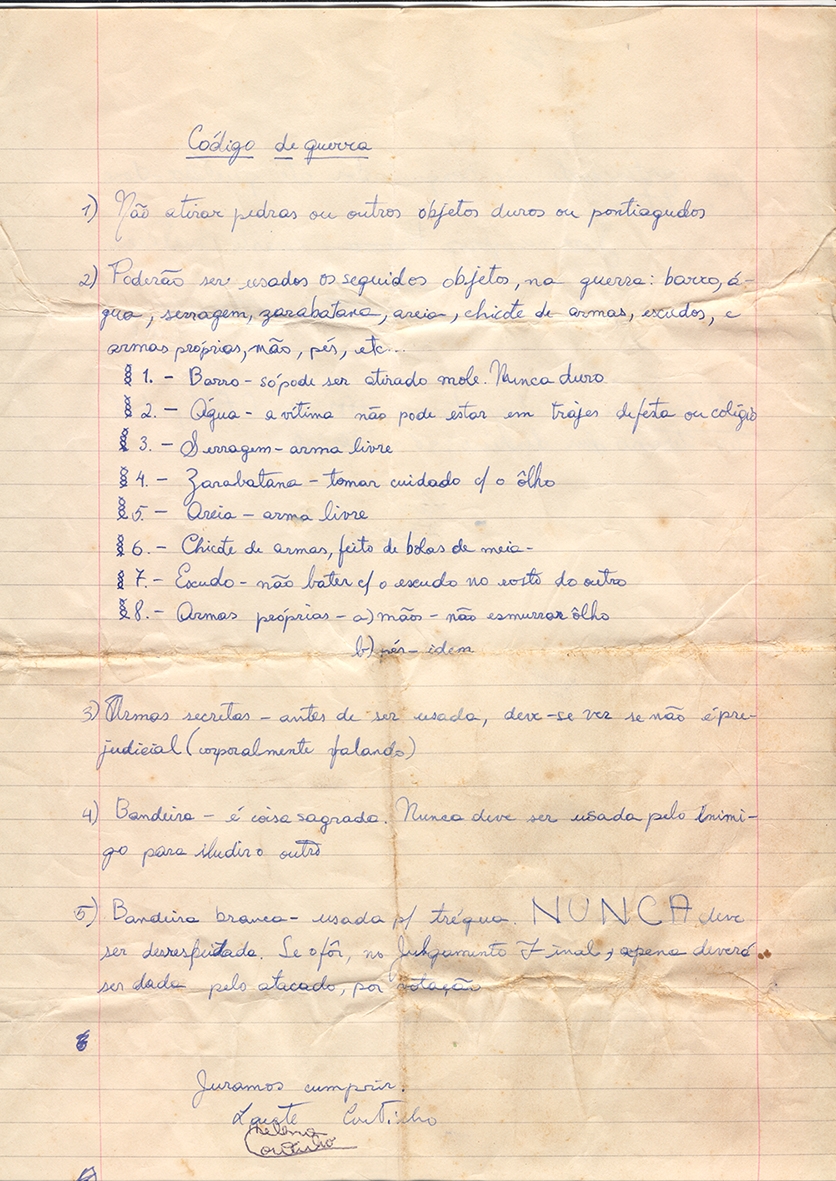 Código de guerra
1) Não atirar pedras ou outros objetos duros ou pontiagudos
2) Poderão ser usados os seguidos objetos, na guerra: barro, á-
gua, serragem, zarabatana, areia, chicote de armas, escudos, e
armas próprias, mão, pés, etc...
§ 1. - Barro - só pode ser atirado mole. Nunca duro
§ 2. - Água - a vítima não pode estar em trajes de festa ou colégio
§ 3. - Serragem - arma livre
§ 4. - Zarabatana - tomar cuidado c/ o ôlho
§ 5. - Areia - arma livre
§ 6. - Chicote de armas, feito de bolas de meia -
§ 7. - Escudo - não bater c/ o escudo no rosto do outro
§ 8. - Armas próprias - a) mãos - não esmurrar ôlho
b) pés - idem
3) Armas secretas - antes de ser usada, deve-se ver se não é pre-
judicial (corporalmente falando)
4) Bandeira - é coisa sagrada. Nunca deve ser usada pelo inimi-
go para iludir o outro
5) Bandeira branca - usada p/ trégua. NUNCA deve
ser desrespeitada. Se o fôr, no Julgamento Final, a pena deverá
ser dada pelo atacado, por votação
Juramos cumprir.
Coutinho
Helena
Coutinho